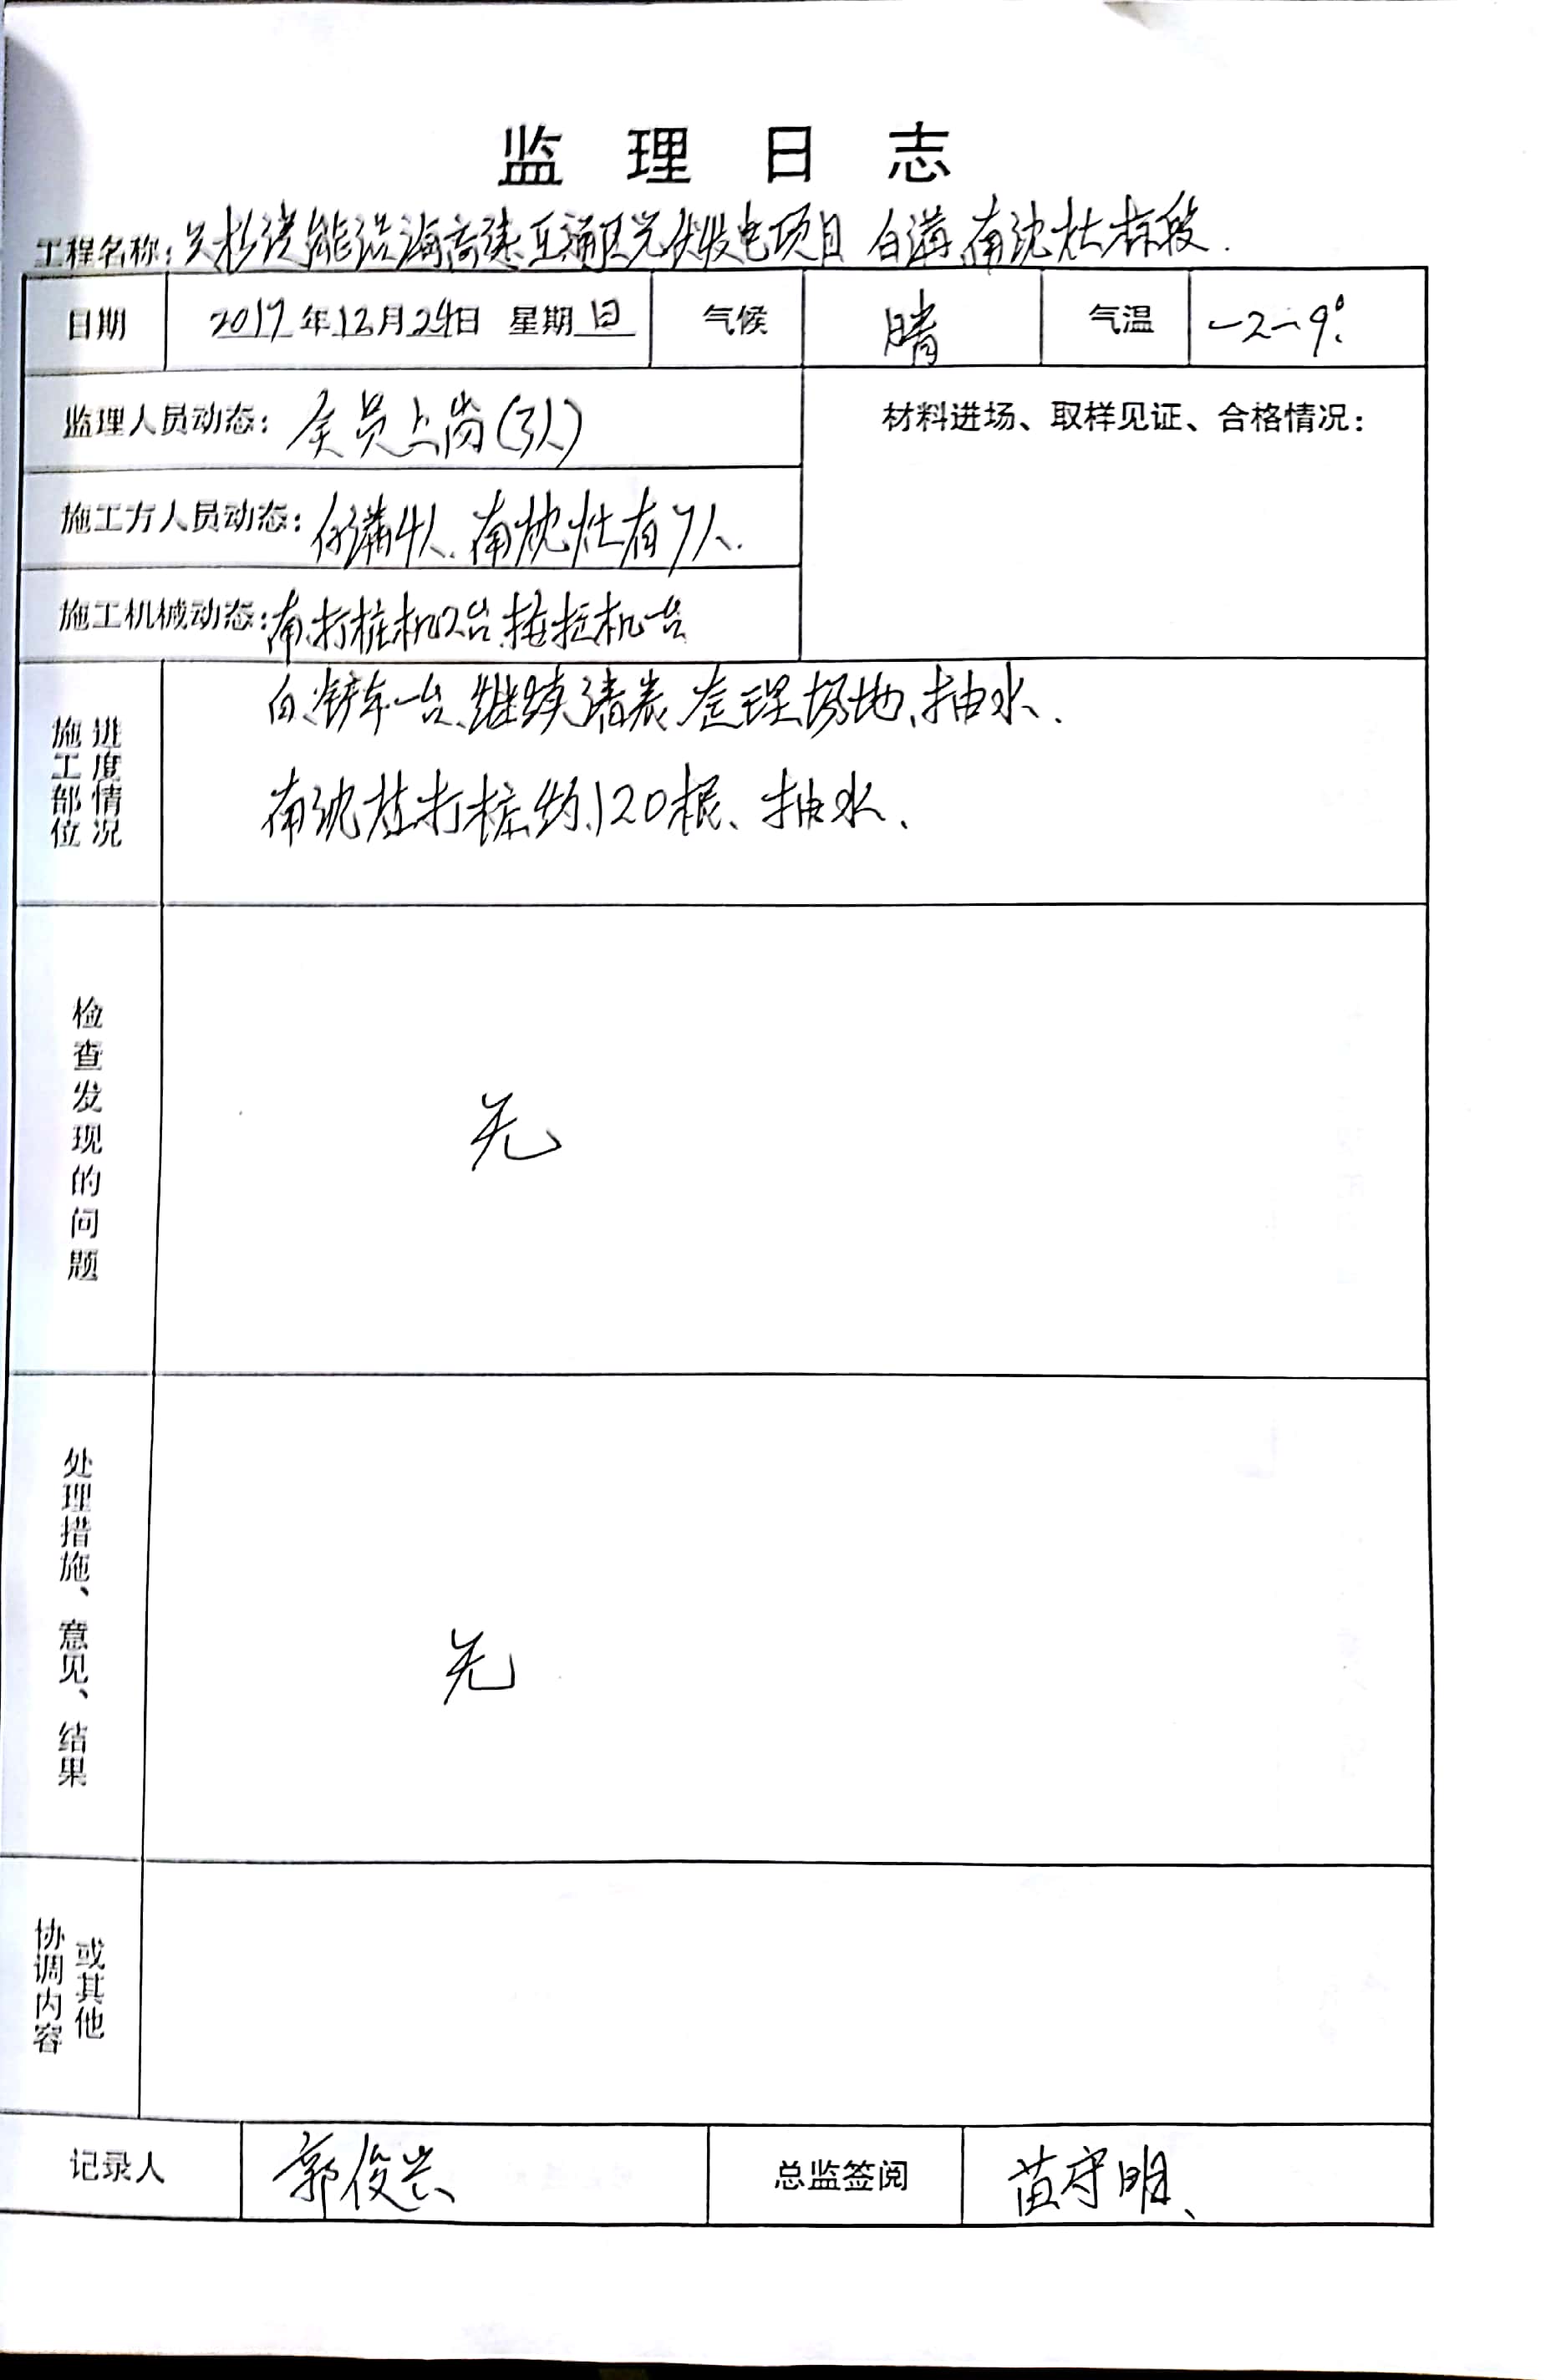 监理日志
工程名称: 兴杉清能沿海高速互通区光伏发电项目 白蒲、南沈灶标段.
日期 2017年12月24日 星期日 气候 晴 气温 -2~9°
监理人员动态: 全员上岗(3人) 材料进场、取样见证、合格情况:
施工方人员动态: 白蒲4人、南沈灶有7人.
施工机械动态: 南、打桩机2台、拖拉机一台
施工部位 进度情况 白、铲车一台、继续清表、整理场地、抽水、
南沈灶打桩约120根、抽水、
检查发现的问题 无
处理措施、意见、结果 无
协调内容 或其他
记录人 郭俊兴 总监签阅 苗守明、